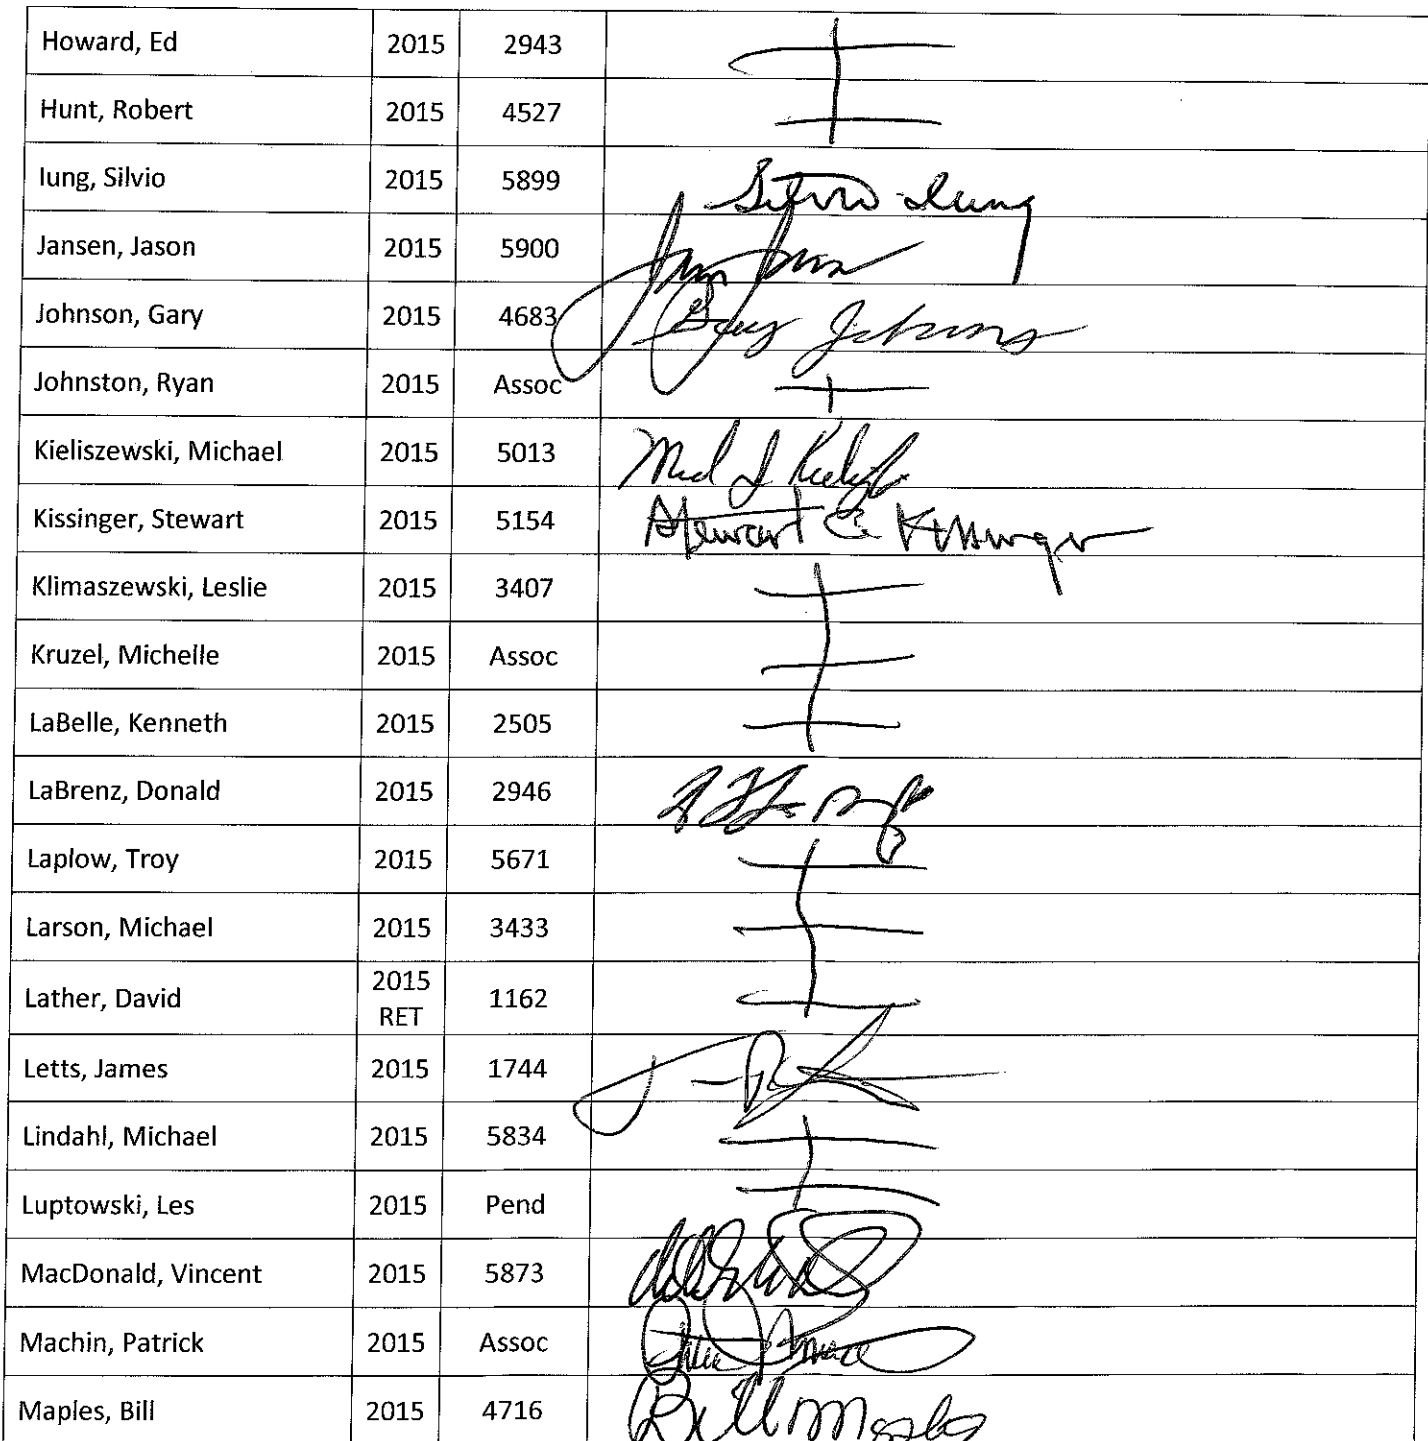 Howard, Ed 2015 2943
Hunt, Robert 2015 4527
Iung, Silvio 2015 5899 Silvio Iung
Jansen, Jason 2015 5900
Johnson, Gary 2015 4683 Gary Johnson
Johnston, Ryan 2015 Assoc
Kieliszewski, Michael 2015 5013
Kissinger, Stewart 2015 5154 Stewart C Kissinger
Klimaszewski, Leslie 2015 3407
Kruzel, Michelle 2015 Assoc
LaBelle, Kenneth 2015 2505
LaBrenz, Donald 2015 2946
Laplow, Troy 2015 5671
Larson, Michael 2015 3433
Lather, David 2015 RET 1162
Letts, James 2015 1744
Lindahl, Michael 2015 5834
Luptowski, Les 2015 Pend
MacDonald, Vincent 2015 5873
Machin, Patrick 2015 Assoc
Maples, Bill 2015 4716 Bill Maples